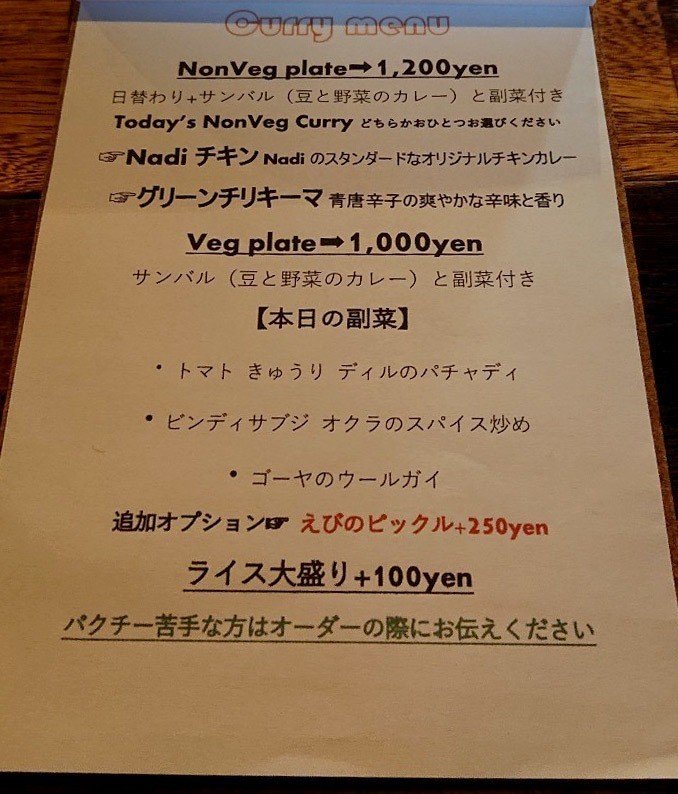 Curry menu
NonVeg plate➡1,200yen
日替わり+サンバル（豆と野菜のカレー）と副菜付き
Today's NonVeg Curry どちらかおひとつお選びください
☞Nadi チキン Nadi のスタンダードなオリジナルチキンカレー
☞グリーンチリキーマ 青唐辛子の爽やかな辛味と香り
Veg plate➡1,000yen
サンバル（豆と野菜のカレー）と副菜付き
【本日の副菜】
・トマト きゅうり ディルのパチャディ
・ビンディサブジ オクラのスパイス炒め
・ゴーヤのウールガイ
追加オプション☞ えびのピックル+250yen
ライス大盛り+100yen
パクチー苦手な方はオーダーの際にお伝えください